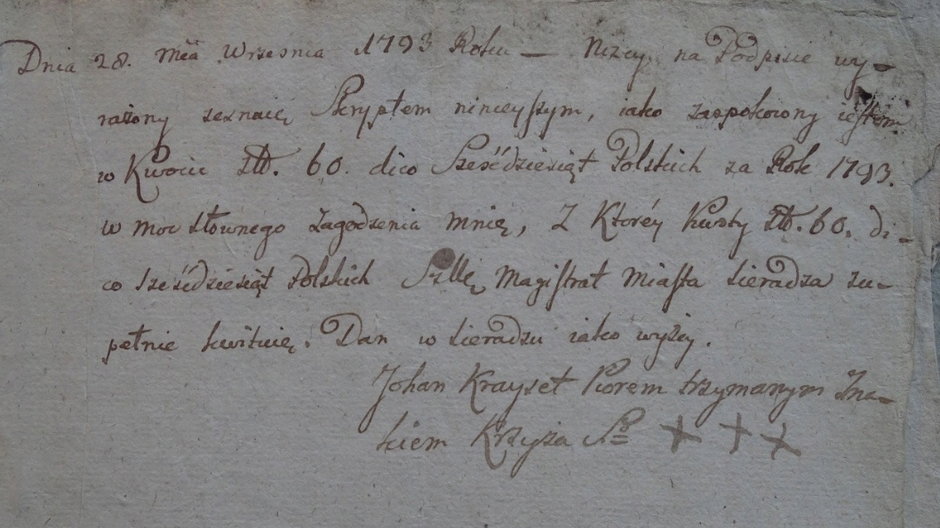 Dnia 28. Mca Wrzesnia 1793 Roku — Niżey na Podpisie wy-
rażony zeznaię Skryptem nineyszym, iako zaspokoiony iestem
w Kwocie Złł. 60. dico Sześćdziesiąt Polskich za Rok 1793.
w moc słownego zagodzenia mnię, Z Któréy Kwoty Złł. 60. di-
co Sześćdziesiąt Polskich Szltę Magistrat Miasta Sieradza zu-
pełnie kwituię. Dan w Sieradzu iako wyżey.
Johan Krayset Piorem trzymanym Zna-
kiem Krzyża So + + +